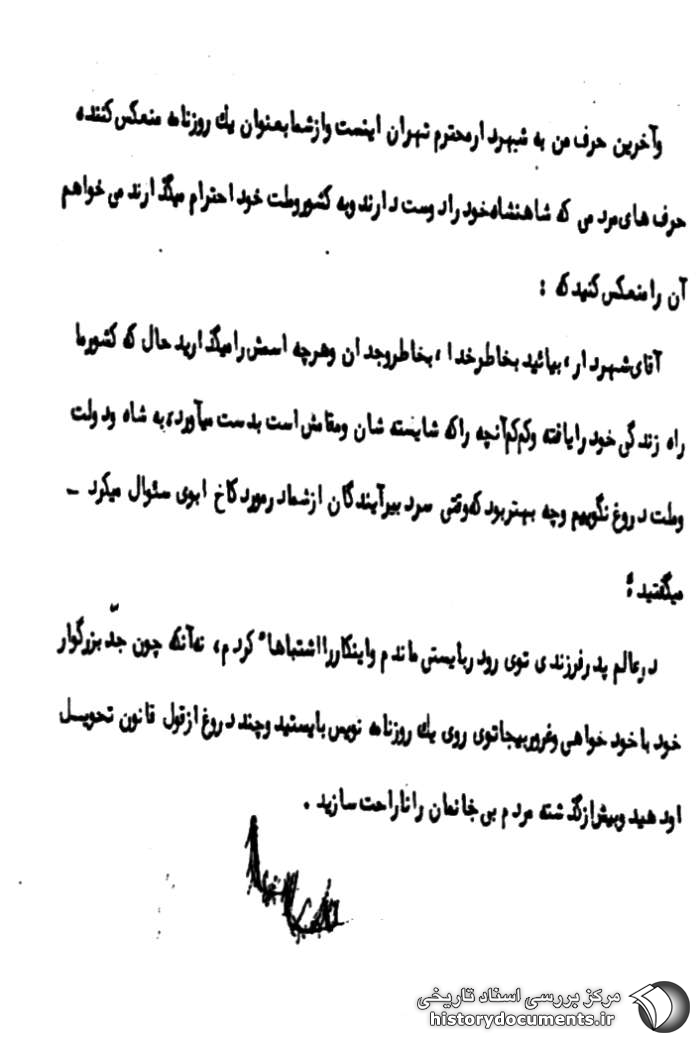 وآخرین حرف من به شهردار محترم تهران اینست وازشما بعنوان یك روزنامه منعکس کننده
حرف های مردمی که شاهنشاه خود را دوست دارند وبه کشور وملت خود احترام میگذارند می خواهم
آن را منعکس کنید که :
آقای شهردار ، بیائید بخاطرخدا ، بخاطر وجدان وهرچه اسمش را میگذارید حال که کشورما
راه زندگی خود را یافته وکم کم آنچه راکه شایسته شان ومقامش است بدست میآورد، به شاه ودولت
وملت دروغ نگوییم وچه بهتر بود که وقتی سردبیر آیندگان ازشما درمورد کاخ ابوی سئوال میکرد –
میگفتید :
درعالم پدر فرزندی توی رودربایستی ماندم واینکاررا اشتباهاً کردم، نه آنکه چون جدّ بزرگوار
خود با خودخواهی وغرور بیجا توی روی یك روزنامه نویس بایستید وچند دروغ ازقول قانون تحویل
اودهید وبیش ازگذشته مردم بی خانمان را ناراحت سازید .
مرکز بررسی اسناد تاریخی
historydocuments.ir